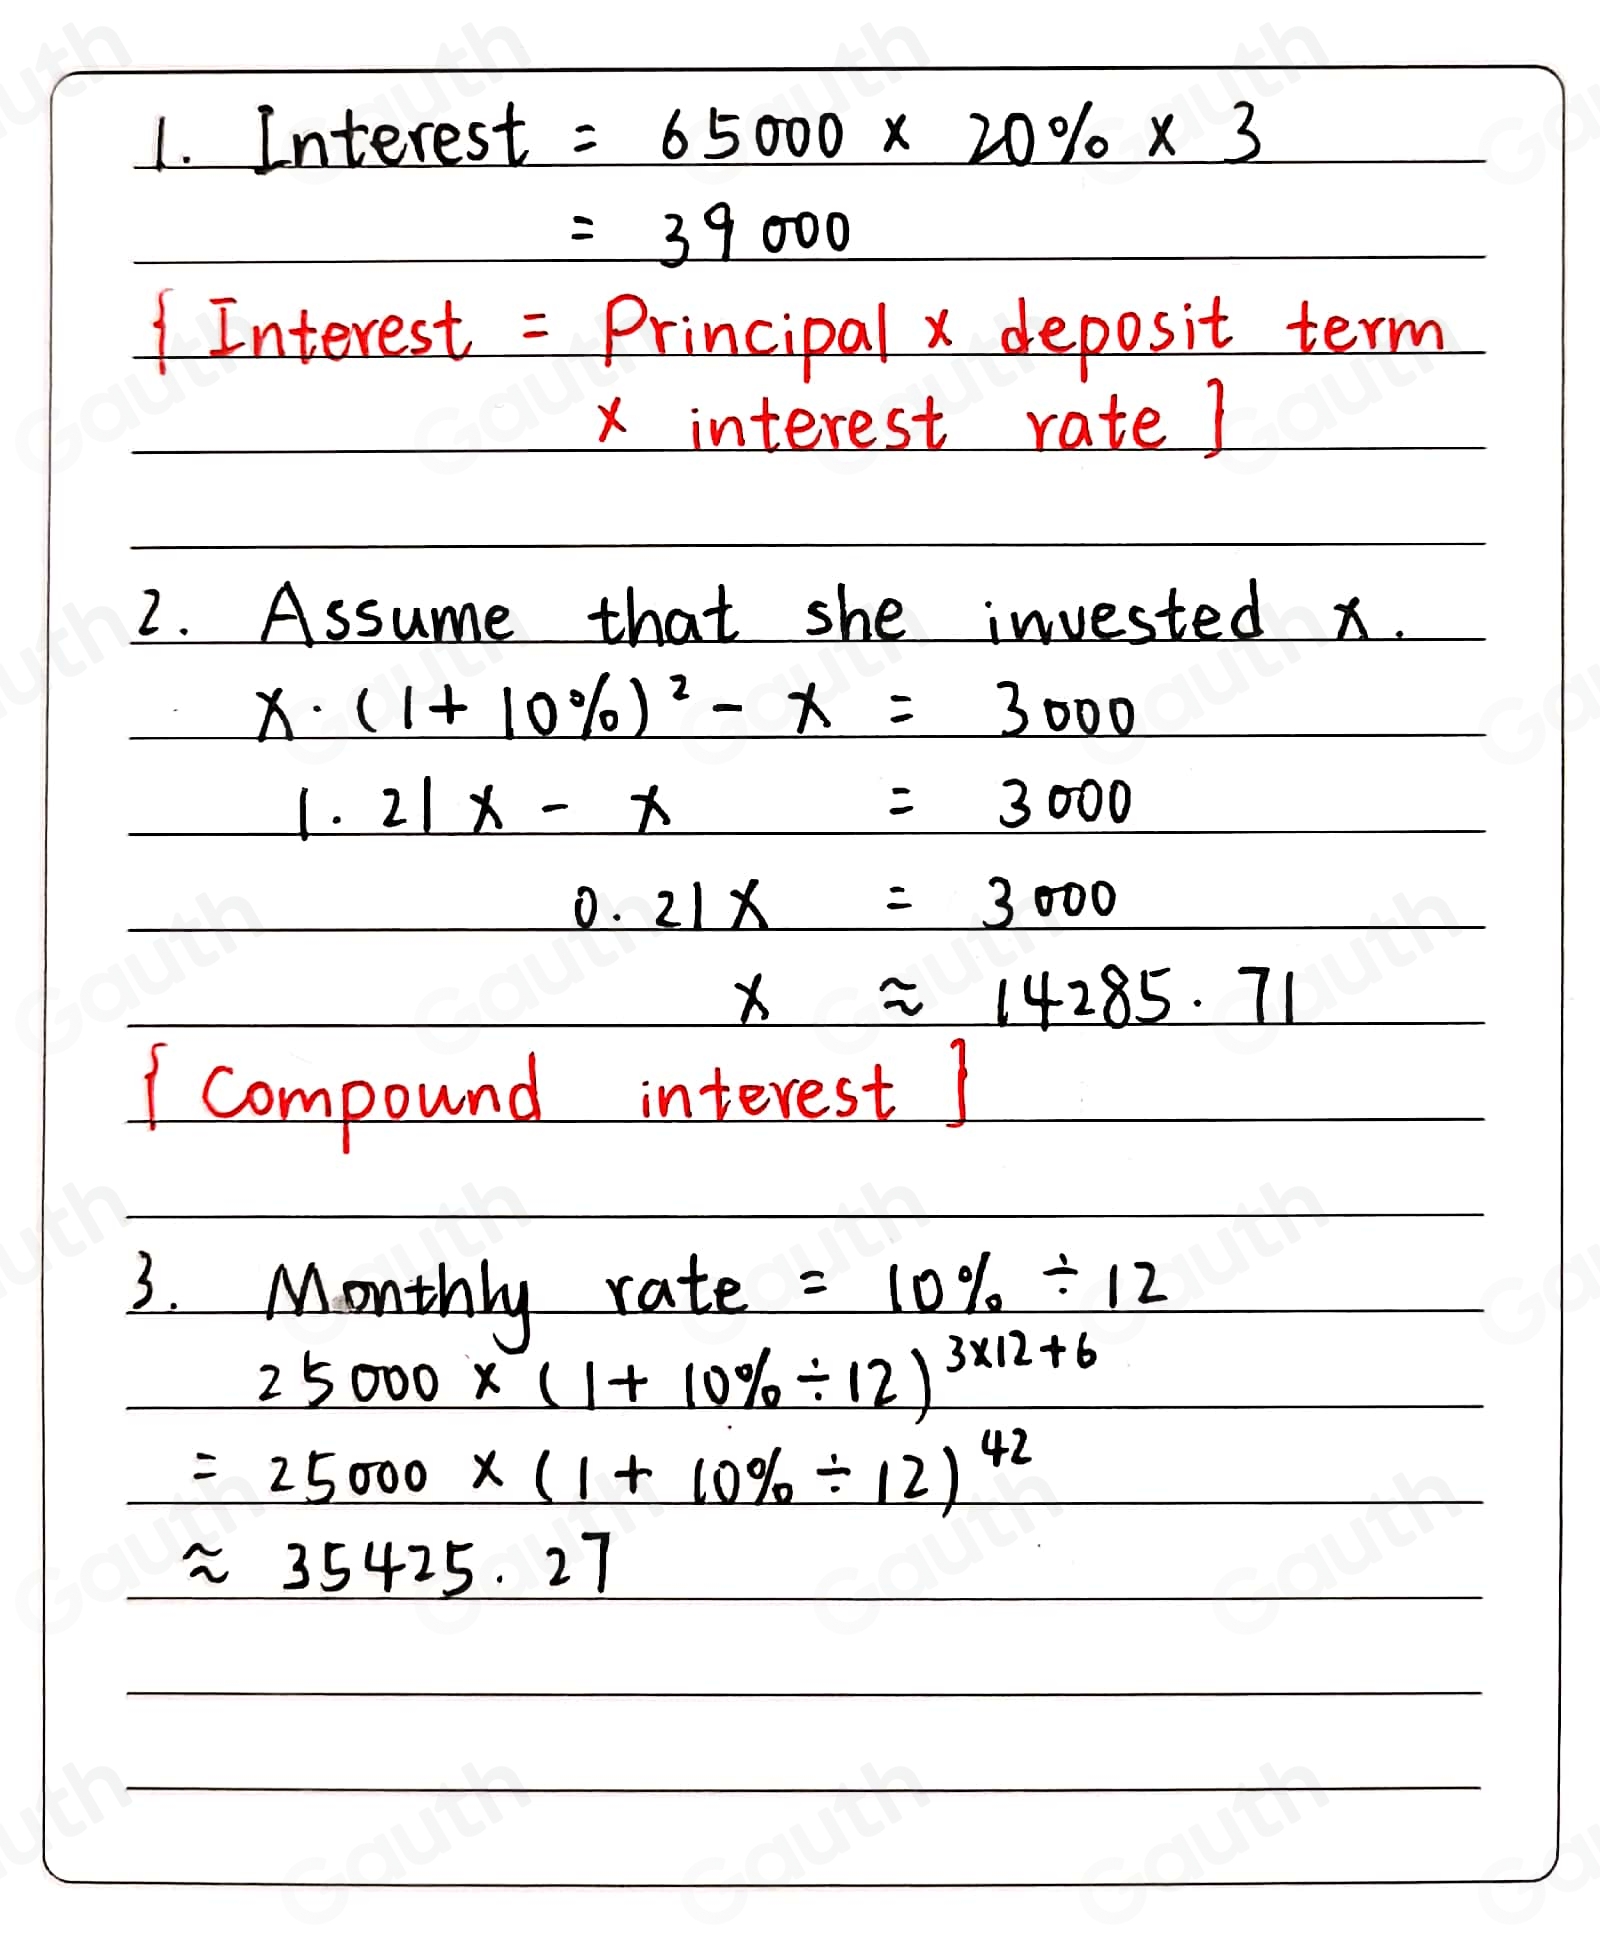 1. Interest = 65000 × 20% × 3
= 39000
{ Interest = Principal × deposit term
× interest rate }
2. Assume that she invested x.
x · (1 + 10%)² - x = 3000
1.21x - x = 3000
0.21x = 3000
x ≈ 14285.71
{ Compound interest }
3. Monthly rate = 10% ÷ 12
25000 × (1 + 10% ÷ 12)^3×12+6
= 25000 × (1 + 10% ÷ 12)^42
≈ 35425.27
Gauth